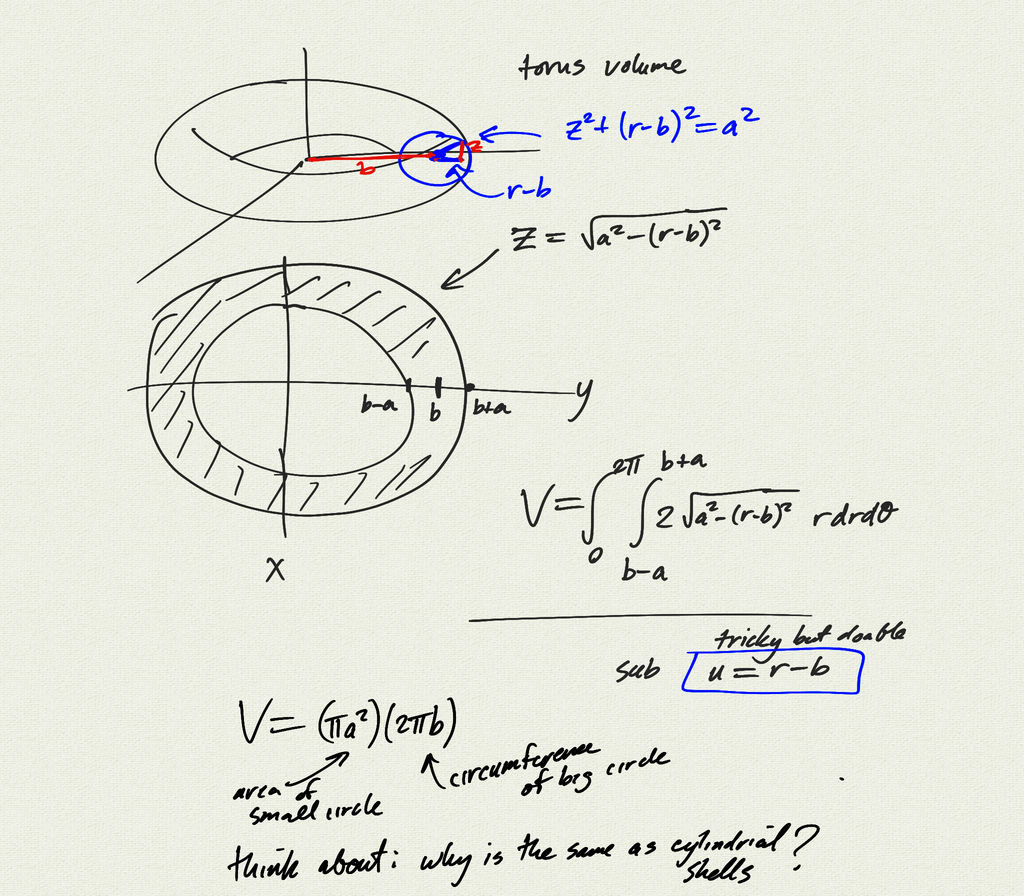 torus volume
z² + (r-b)² = a²
z
b
r-b
z = √a²-(r-b)²
b-a
b
b+a
y
V = ∫₀^2π ∫_b-a^b+a 2 √a²-(r-b)² r dr dθ
x
tricky but doable
sub u = r-b
V = (πa²)(2πb)
area of
small circle
circumference
of big circle
think about: why is the same as cylindrial
shells?